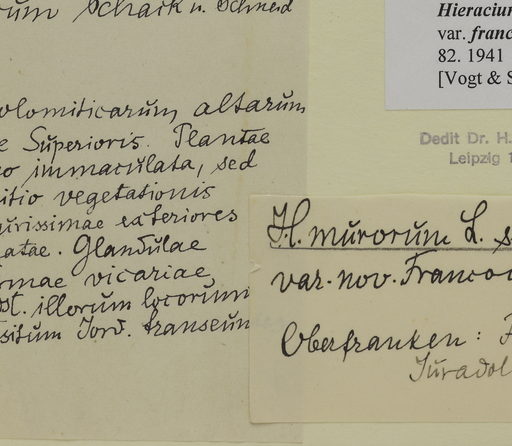 Schack u. Schneid
olomiticarum, altarum
e Superioris. Plantae
immaculata, sed
itio vegetationis
gurissimae exteriores
atae. Glandulae
rmae vicariae
st. illorum locorum
situm Jord. transeun
Hieraciu
var. franc
82. 1941
[Vogt & S
Dedit Dr. H.
Leipzig 1
H. murorum L. s
var. nov. Franco
Oberfranken:
Juradol